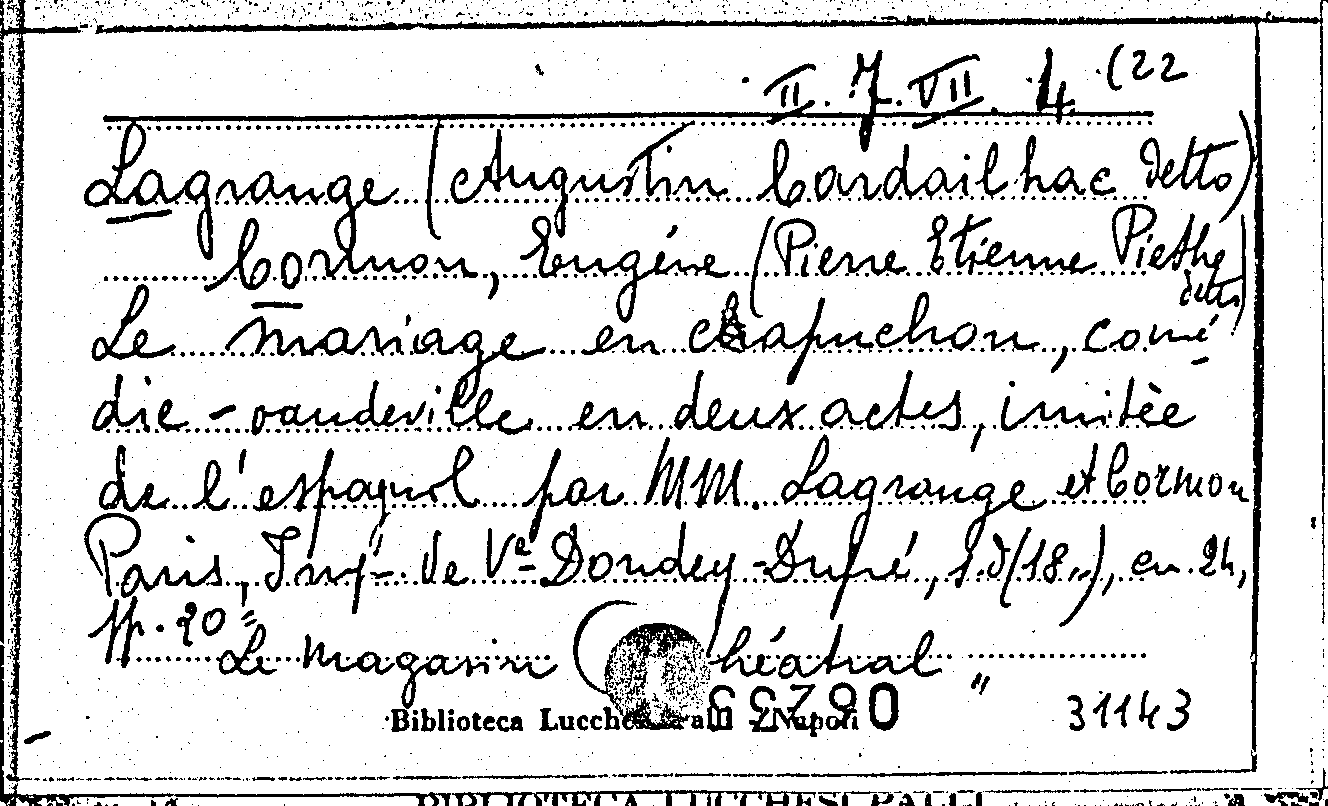 II. 7. VII. 4. (22
Lagrange (Augustin Cardailhac detto)
Cormon, Eugéne (Pierre Etienne Piesthe
detto)
Le mariage en capuchon, comé
die - vaudeville en deux actes, imitèe
de l'espagnol par MM. Lagrange et Cormon
Paris, Imp. de Vᵉ Dondey-Dupré, s.d (18..), cm. 24,
pp. 20=
Le magasin théatral "
Biblioteca Lucchesi Palli - Napoli
31143
BIBLIOTECA LUCCHESI PALLI